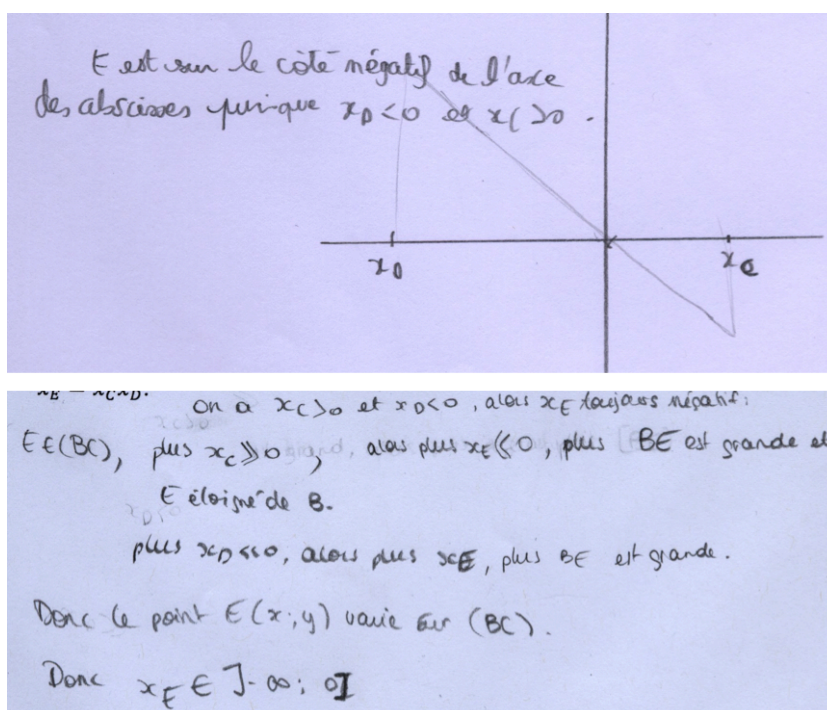 E est sur le côté négatif de l'axe
des abscisses puisque x_D<0 et x_C>0.
x_D
x_C
x_E = x_Cx_D.
On a x_C>0 et x_D<0, alors x_E toujours négatif:
E∈(BC), plus x_C≫0, alors plus x_E≪0, plus BE est grande et
E éloigné de B.
plus x_D<<0, alors plus x_E, plus BE est grande.
Donc le point E(x;y) varie sur (BC).
Donc x_E ∈ ]-∞; 0[